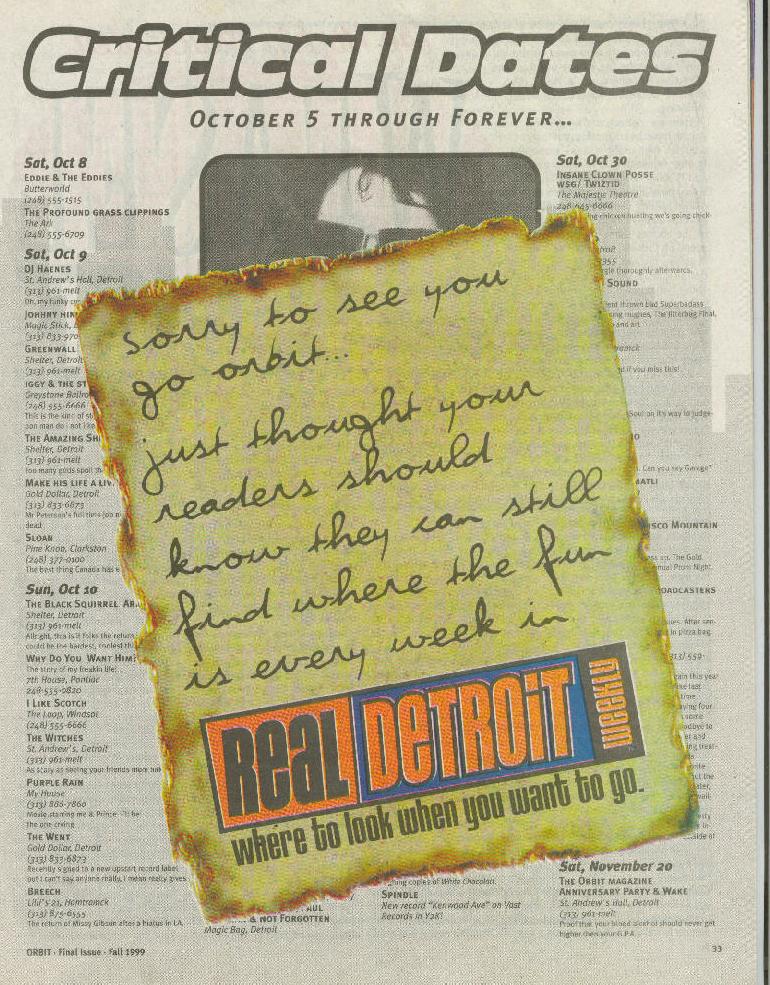 Critical Dates
October 5 through Forever...
Sat, Oct 8
Eddie & The Eddies
Butterworld
(248) 555-1515
The Profound grass clippings
The Ark
(248) 555-6709
Sat, Oct 9
DJ Haenes
St. Andrew's Hall, Detroit
(313) 961-melt
Oh, my funky
Johnny Hin
Magic Stick,
(313) 833-970
Greenwall
Shelter, Detroit
(313) 961-melt
Iggy & the St
Greystone Ballro
(248) 555-6666
This is the kind of
The Amazing Sh
Shelter, Detroit
(313) 961-melt
Too many gods spoil th
Make his life a liv
Gold Dollar, Detroit
(313) 833-6873
Mr Peterson's full time job
dead
Sloan
Pine Knob, Clarkston
(248) 377-0100
The best thing Canada has
Sun, Oct 10
The Black Squirrel Ar
Shelter, Detroit
(313) 961-melt
Allright, this is it folks the return
could be the hardest, coolest
Why Do You Want Him?
The story of my freakin life!
7th House, Pontiac
248-555-0820
I Like Scotch
The Loop, Windsor
(248) 555-6666
The Witches
St. Andrew's, Detroit
(313) 961-melt
As scary as seeing your friends more
Purple Rain
My House
(313) 886-7860
Movie starring me & Prince. I'll be
the one crying
The Went
Gold Dollar, Detroit
(313) 833-6873
Recently signed to a new upstart record label
but I can't say anyone really, I mean really gives
Breech
Lili's 21, Hamtramck
(313) 875-6555
The return of Missy Gibson after a hiatus in LA
sorry to see you
go orbit...
just thought your
readers should
know they can still
find where the fun
is every week in
Real Detroit Weekly
where to look when you want to go.
& not Forgotten
Magic Bag, Detroit
copies of White Chocolat.
Spindle
New record "Kenwood Ave" on Vast
Records in Y2K!
Sat, Oct 30
Insane Clown Posse
wsg/ Twiztid
The Majestic Theatre
248-645-6666
chicken hunting we's going chick
355
thoroughly afterwards.
Sound
thrown bad Superbadass
hughes, The Jitterbug Final,
and art
if you miss this!
Soul on it's way to judge
Can you say Garage"
isco Mountain
The Gold
Prom Night.
oadcasters
in pizza bag
this year
last
time
four
some
side of
Sat, November 20
The Orbit magazine
Anniversary Party & Wake
St. Andrew's Hall, Detroit
(313) 961-melt
Proof that your blood alcohol should never get
higher then your G.P.A.
ORBIT · Final Issue · Fall 1999
33